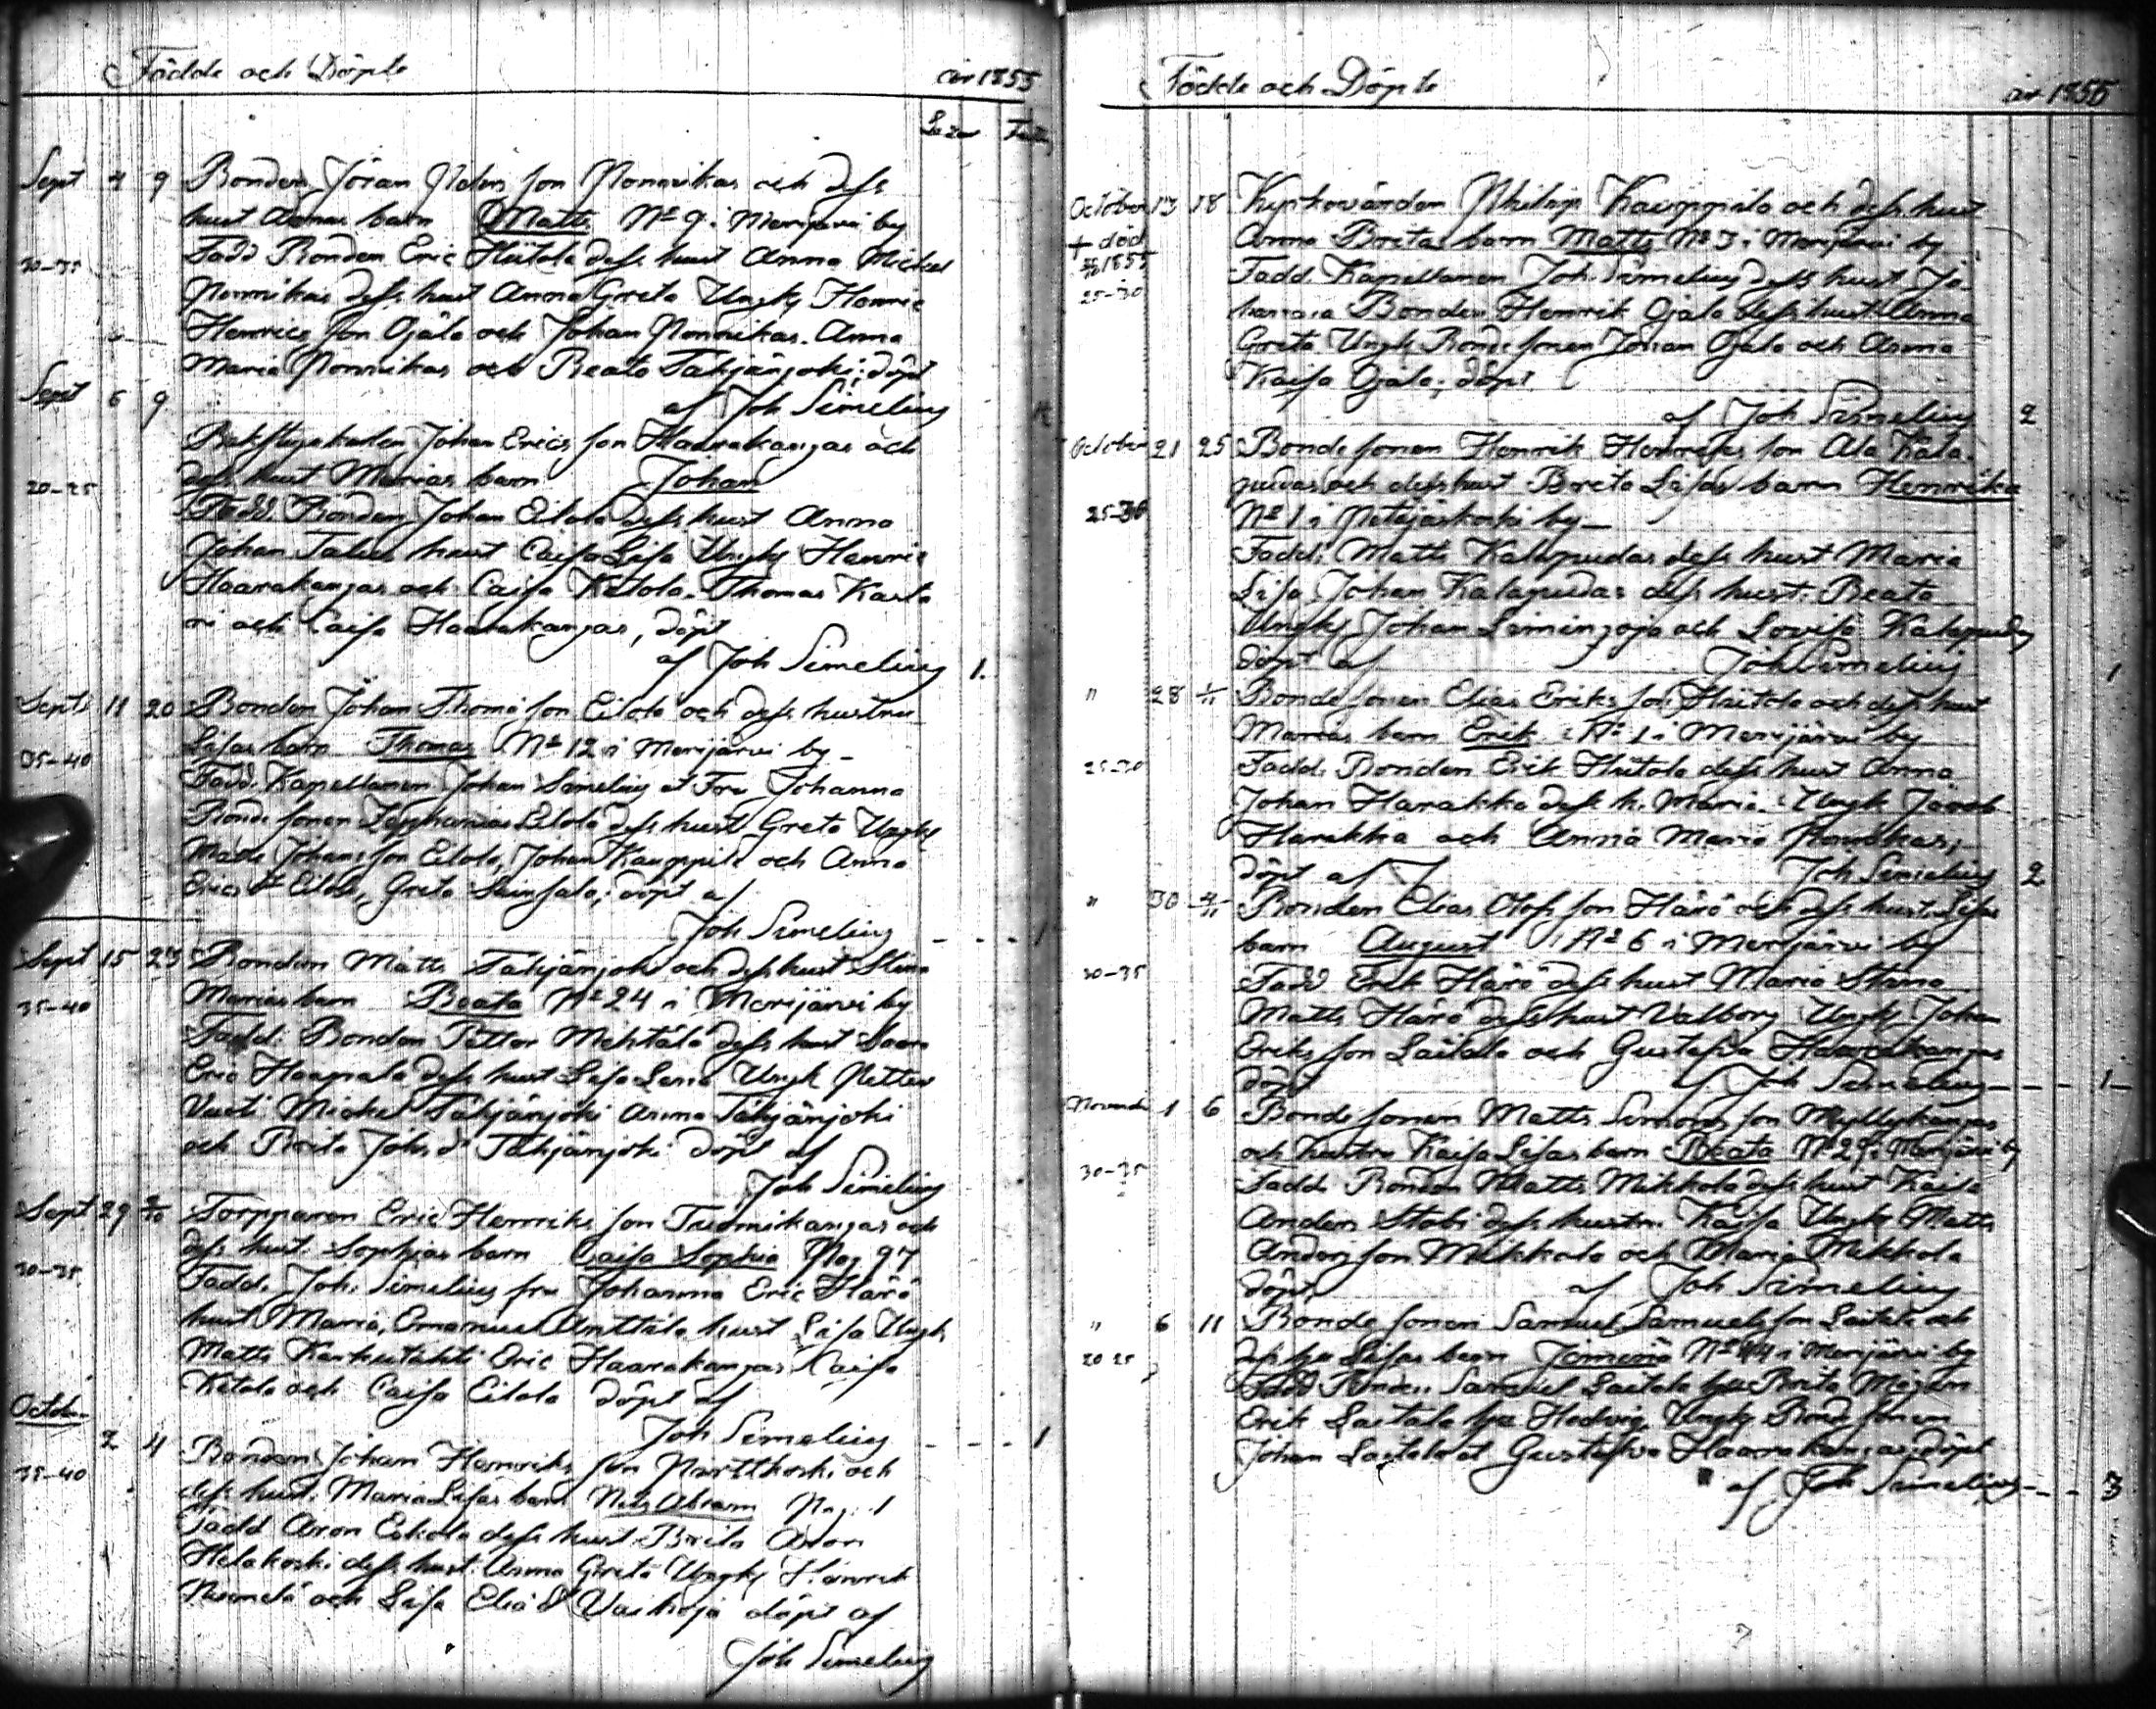 Födde och Döpte år 1855
Sept 4 9 Bonden Jöran son Nonnikas och dess
hust Annas barn Matts No 9 i Merijärvi by
Fadd Bonden Eric Hiitola dess hust Anna Michel
30-35
Nonnikas dess hust Anna Greta Ungk Henric
Henrics son Ojala och Johan Nonnikas. Anna
Maria Nonnikas och Beata Tahjänjoki; döpt
af Joh Simelius
Sept 6 9
Johan Erics son Haarakangas och
dess hust Marias barn Johan
20-25
Fadd. Bonden Johan Eilola dess hust Anna
Johan hust Caisa Lisa Ungk Henric
Haarakangas och Caisa Ketola. Thomas Karla
ri och Caisa Haarakangas, döpt
af Joh Simelius 1.
Sept 11 20 Bonden Johan Thomæ son Eilola och dess hustru
Lisas barn Thomas No 12 i Merijärvi by
35-40
Fadd. Kapellanen Johan Simelius et Fru Johanna
Bonde sonen Zephanias Eilola dess hust Greta Ungk
Matts Johans son Eilola, Johan Kauppila och Anna
Erics dr Eilola, Greta döpt af
Joh Simelius 1
Sept 15 23 Bonden Matts Tahjänjoki och dess hust Stina
Marias barn Beata No 24 i Merijärvi by
35-40
Fadd: Bonden Petter Mehtälä dess hust Saara
Eric Haapala dess hust Lisa Lena Ungk Petter
Michel Tahjänjoki Anna Tähjänjoki
och Brita Johs d Tahjänjoki döpt af
Joh Simelius
Sept 29 Torpparen Eric Henriks son Tuomikangas och
dess hust. Sophias barn Caisa Sophia No 97
30-35
Fadd. Joh. Simelius fru Johanna Eric Härö
hust Maria, Emanuel Anttila hust Lisa Ungk
Matts Eric Haarakangas Caisa
Ketola och Caisa Eilola döpt af
Joh Simelius 1
Octob.
2 4 Bonden Johan Henriks son Pirttikoski och
35-40
dess hust. Maria Lisas barn Nils Abram No 1
Fadd Aron Eskola dess hust. Brita Aron
Helakoski dess hust: Anna Greta Ungk Henrik
och Lisa Eliæ dr Vaikoja döpt af
Joh Simelius
Födde och Döpte år 1855
October 13 18 Kyrkovärden Philip Kauppila och dess hust
+ död
Anna Britas barn Matts No 3 i Merijärvi by
1855
Fadd. Kapellanen Joh. Simelius dess hust. Jo
25-30
hanna Bonden Henrik Ojala dess hust. Anna
Greta Ungk Bonde sonen Johan Ojala och Anna
Kaisa Ojala; döpt
af Joh Simelius 2
October 21 25 Bonde sonen Henrik Henriks son Ala Kala
pudas och dess hust Brita Lisas barn Henrika
25-30
No 1 i Petäjäskoski by
Fadd; Matts Kalapudas dess hust Maria
Lisa Johan Kalapudas dess hust. Beata
Ungk Johan Limingoja och Lovisa Kalapudas
döpt af Joh Simelius 1
" 28 Bonde sonen Elias Eriks son Hiitola och dess hust
Marias barn Erik No 1 i Merijärvi by
25-30
Fadd. Bonden Erik Hiitola dess hust Anna
Johan Harakka dess h. Maria. Ungk Jacob
Harakka och Anna Maria
döpt af Joh Simelius 2
" 30 Bonden Elias Olofs son Härö och dess hust. Lisas
barn August No 6 i Merijärvi by
30-35
Fadd Erik Härö dess hust Maria Stina
Matts Härö dess hust Valborg Ungk Johan
Eriks son Laitala och Gustafva Haarakangas
döpt af Joh Simelius 1
Novemb 1 6 Bonde sonen Matts Simons son Myllykangas
och hustru Kaisa Lisas barn Beata No 29 i Merijärvi by
30-35
Fadd. Bonden Matts Mikkola dess hust Kaisa
Anders dess hustru Kaisa Ungk Matts
Anders son Mikkola och Maria Mikkola
döpt af Joh Simelius
" 6 11 Bonde sonen Samuel Samuels son Laitala och
20 25
dess hu Lisas barn No 44 i Merijärvi by
Fadd Bonden Samuel Laitala hu Brita
Erik Laitala hu Hedvig Ungk Bonde sonen
Johan Laitala et Gustafva Haarakangas; döpt
af Joh Simelius 3